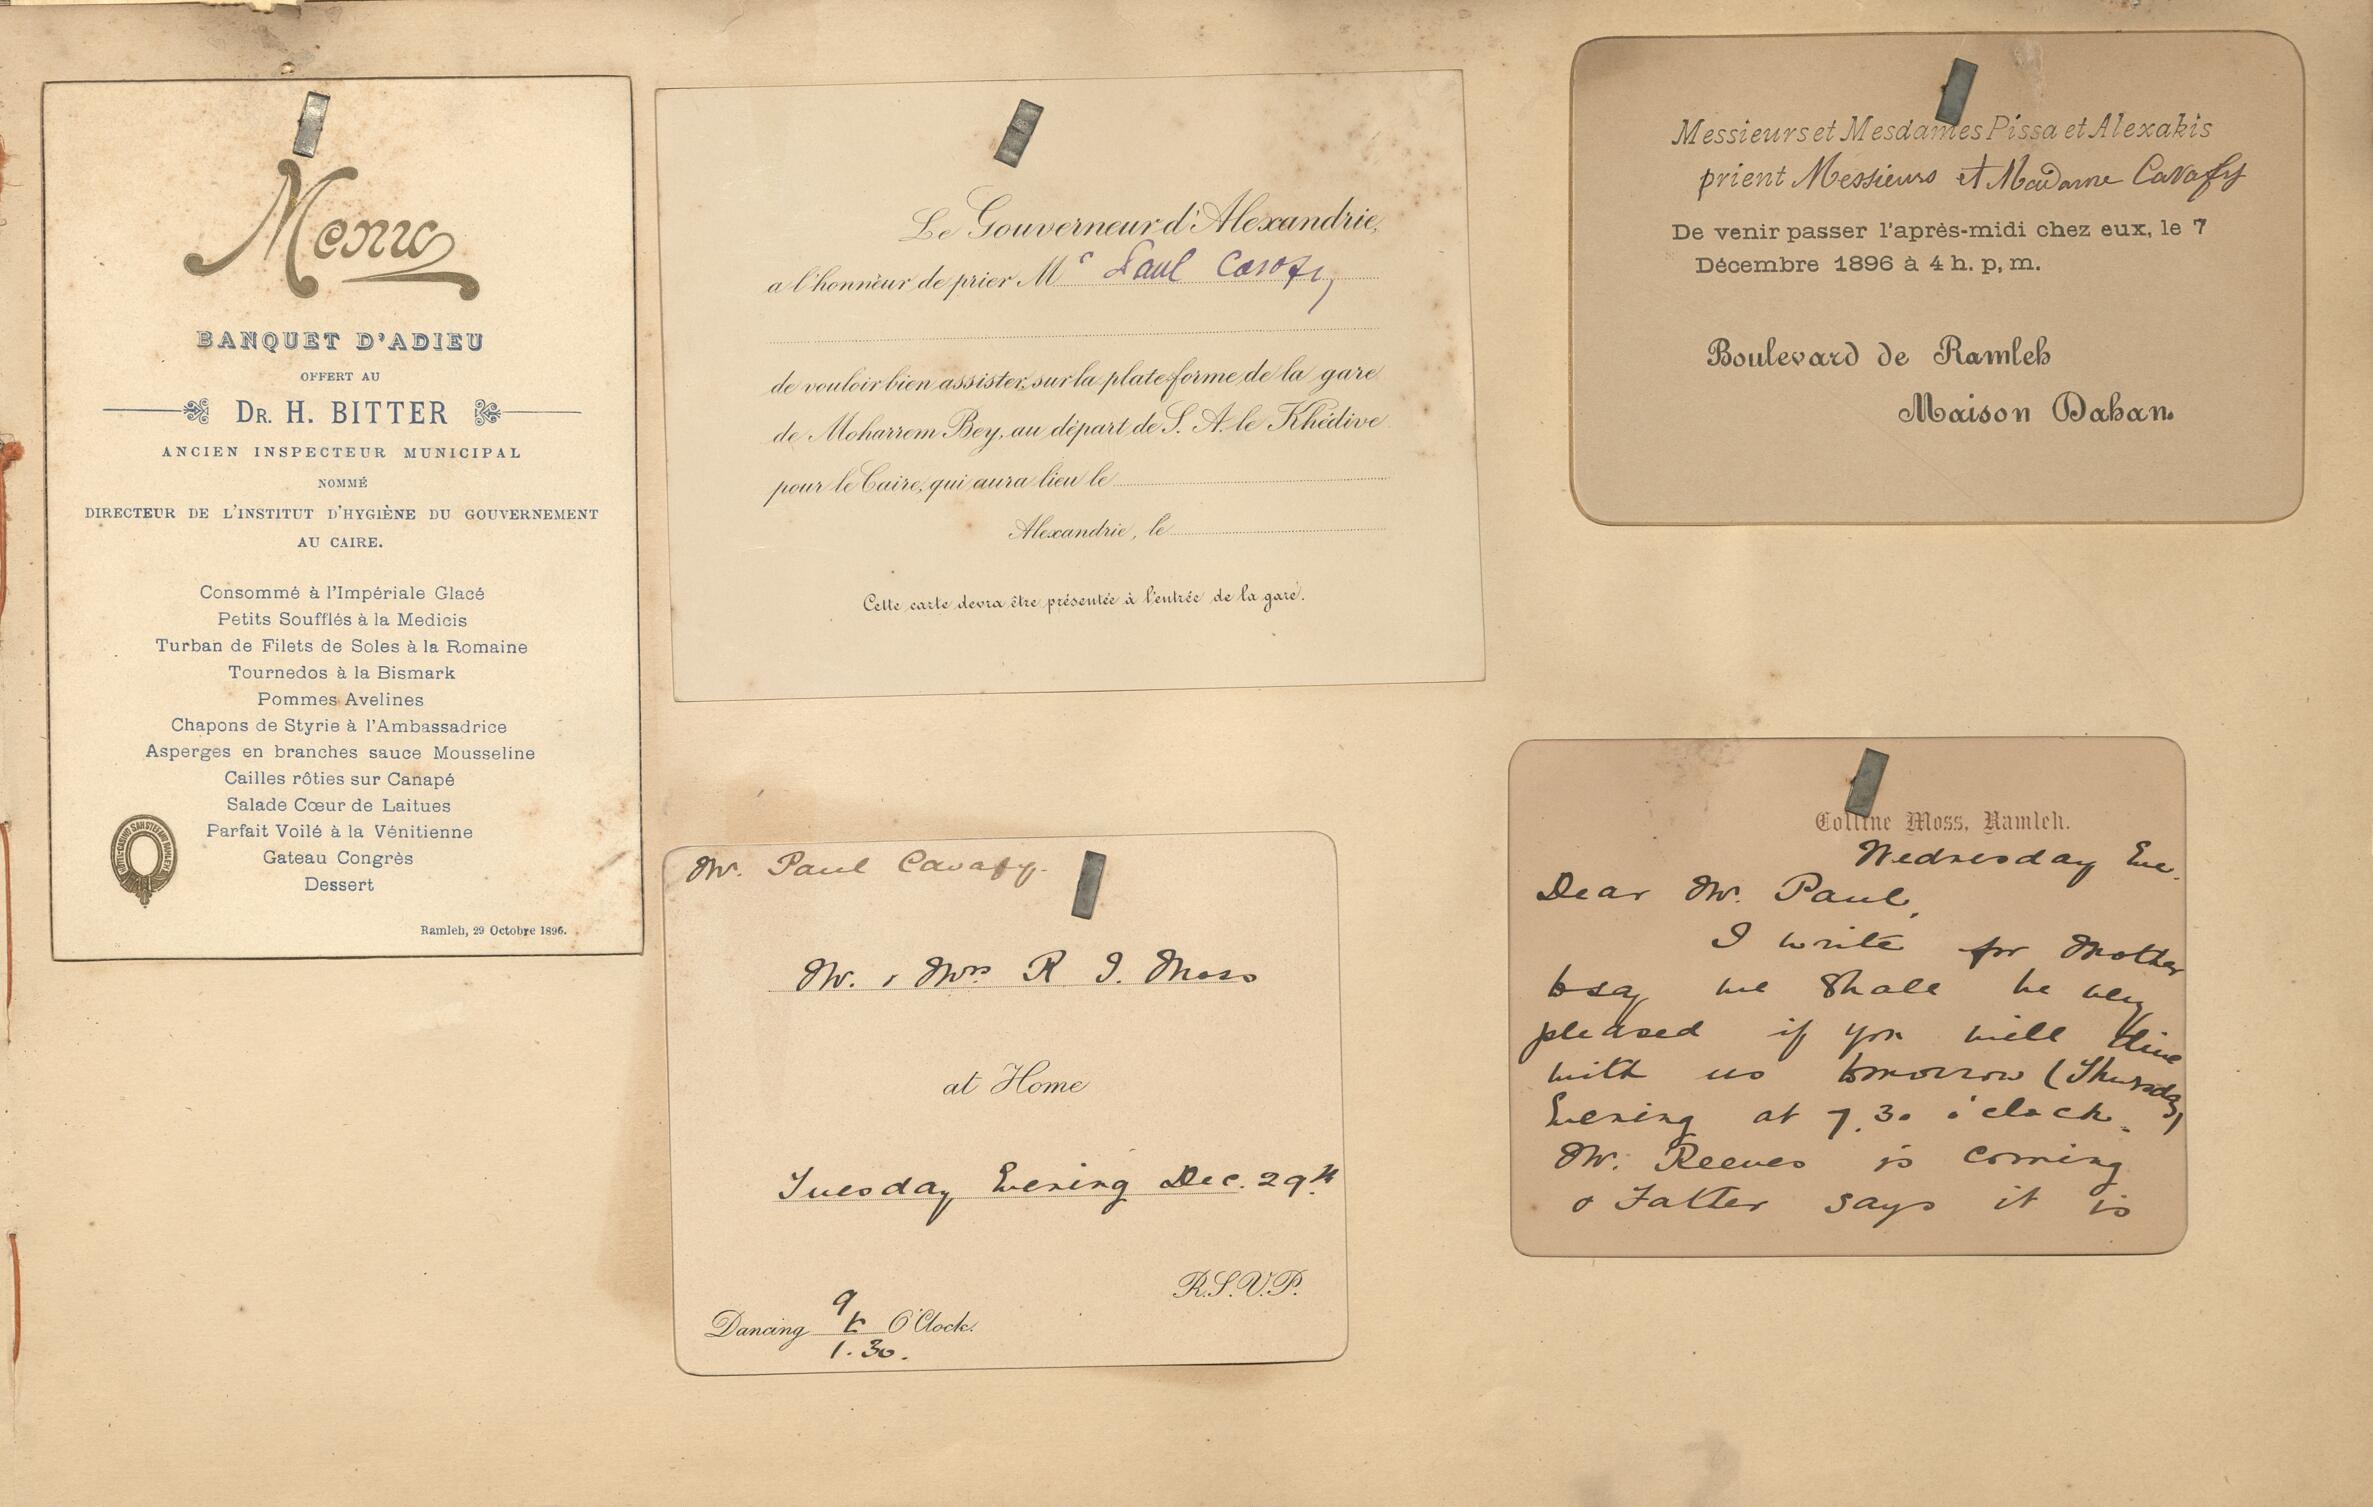 Menu
BANQUET D'ADIEU
OFFERT AU
DR. H. BITTER
ANCIEN INSPECTEUR MUNICIPAL
NOMMÉ
DIRECTEUR DE L'INSTITUT D'HYGIÈNE DU GOUVERNEMENT
AU CAIRE.
Consommé à l'Impériale Glacé
Petits Soufflés à la Medicis
Turban de Filets de Soles à la Romaine
Tournedos à la Bismark
Pommes Avelines
Chapons de Styrie à l'Ambassadrice
Asperges en branches sauce Mousseline
Cailles rôties sur Canapé
Salade Cœur de Laitues
Parfait Voilé à la Vénitienne
Gateau Congrès
Dessert
HOTEL-CASINO SAN STEFANO RAMLEH
Ramleh, 29 Octobre 1896.
Le Gouverneur d'Alexandrie,
a l'honneur de prier Mr Paul Cavafy
de vouloir bien assister, sur la plate-forme de la gare
de Moharrem Bey, au départ de S. A. le Khédive
pour le Caire, qui aura lieu le
Alexandrie, le
Cette carte devra être présentée à l'entrée de la gare.
Messieurs et Mesdames Pissa et Alexakis
prient Messieurs et Madame Cavafy
De venir passer l'après-midi chez eux, le 7
Décembre 1896 à 4 h. p, m.
Boulevard de Ramleh
Maison Dahan.
Mr. Paul Cavafy.
Mr. & Mrs R. I. Moss
at Home
Tuesday Evening Dec. 29th
R.S.V.P.
Dancing 9 to O'Clock.
1.30.
Colline Moss, Ramleh.
Wednesday Eve.
Dear Mr. Paul,
I write for Mother
to say we shall be very
pleased if you will dine
with us tomorrow (Thursday)
Evening at 7.30 o'clock.
Mr. Reeves is coming
& Father says it is